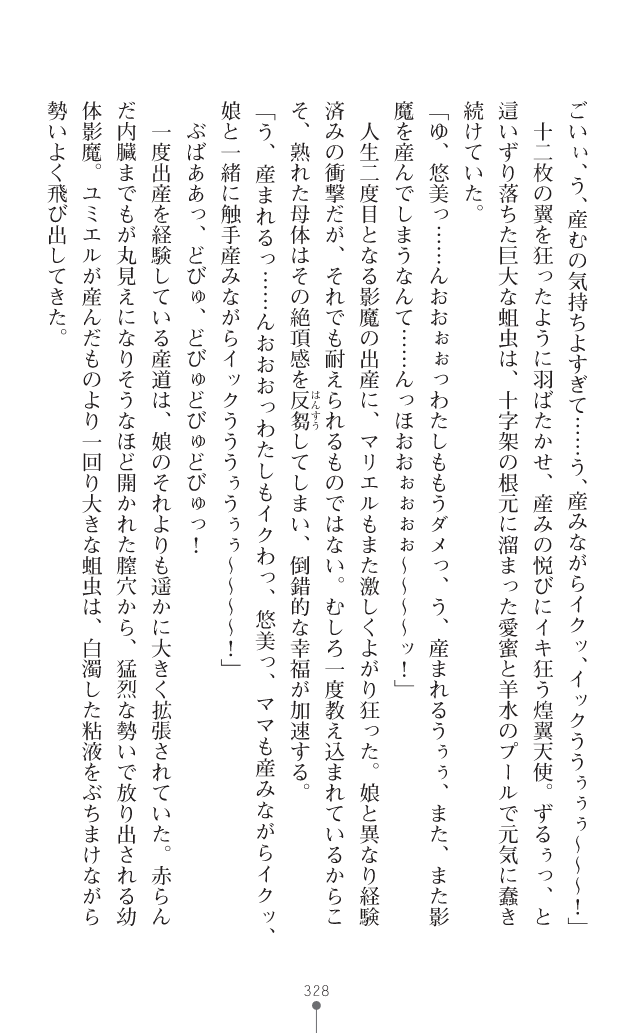 ごいぃ、う、産むの気持ちよすぎて……う、産みながらイクッ、イックううぅぅぅ～～～！」
十二枚の翼を狂ったように羽ばたかせ、産みの悦びにイキ狂う煌翼天使。ずるぅっ、と
這いずり落ちた巨大な蛆虫は、十字架の根元に溜まった愛蜜と羊水のプールで元気に蠢き
続けていた。
「ゆ、悠美っ……んおおぉぉっわたしももうダメっ、う、産まれるうぅぅ、また、また影
魔を産んでしまうなんて……んっほおおぉぉぉぉ～～～～ッ！」
人生二度目となる影魔の出産に、マリエルもまた激しくよがり狂った。娘と異なり経験
済みの衝撃だが、それでも耐えられるものではない。むしろ一度教え込まれているからこ
そ、熟れた母体はその絶頂感を反芻はんすうしてしまい、倒錯的な幸福が加速する。
「う、産まれるっ……んおおおっわたしもイクわっ、悠美っ、ママも産みながらイクッ、
娘と一緒に触手産みながらイックうううぅうぅぅ～～～～！」
ぶばああっ、どびゅ、どびゅどびゅどびゅっ！
一度出産を経験している産道は、娘のそれよりも遥かに大きく拡張されていた。赤らん
だ内臓までもが丸見えになりそうなほど開かれた膣穴から、猛烈な勢いで放り出される幼
体影魔。ユミエルが産んだものより一回り大きな蛆虫は、白濁した粘液をぶちまけながら
勢いよく飛び出してきた。
328